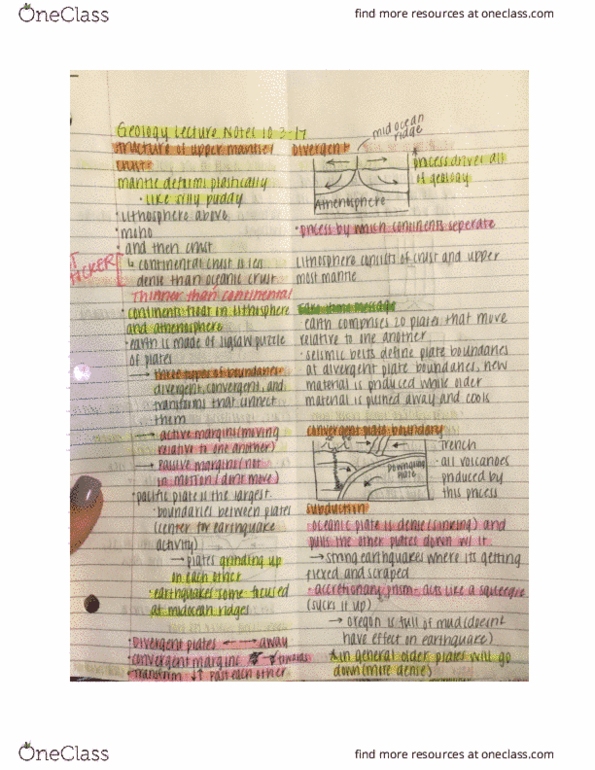 OneClass
find more resources at oneclass.com
Geology Lecture Notes 10-3-17
structure of upper mantle/
crust
mantle deforms plastically
• like silly puddy
• lithosphere above
• moho
• and then crust
↳ continental crust is less
dense than oceanic crust
Thinner than continental
• continents float in lithosphere
and athenosphere
• earth is made of jigsaw puzzle
of plates
→ three types of boundaries
divergent, convergent, and
transforms that connect
them
→ active margins (moving
relative to one another)
→ passive margins (not
in motion (don't move)
• pacific plate is the largest
• boundaries between plates
(center for earthquake
activity)
→ plates grinding up
on each other
• earthquakes some focused
at midocean ridges
• Divergent plates ← → away
• convergent margins towards
• transform ↓↑ past each other
divergent
mid ocean
ridge
Athenosphere
process drives all
of geology
• process by which continents seperate
lithosphere consists of crust and upper
most mantle
take home message
earth comprises 20 plates that move
relative to one another
• seismic belts define plate boundaries
at divergent plate boundaries, new
material is produced while older
material is pushed away and cools
convergent plate boundary
Trench
Downgoing
plate
• all volcanoes
produced by
this process
subduction
oceanic plate is dense (sinking) and
pulls the other plates down w/ it
→ strong earthquakes where its getting
flexed and scraped
• accretionary prism - acts like a squeegee
(sucks it up)
→ oregon is full of mud (doesnt
have effect in earthquake)
* in general older plates will go
down (more dense)
OneClass
find more resources at oneclass.com